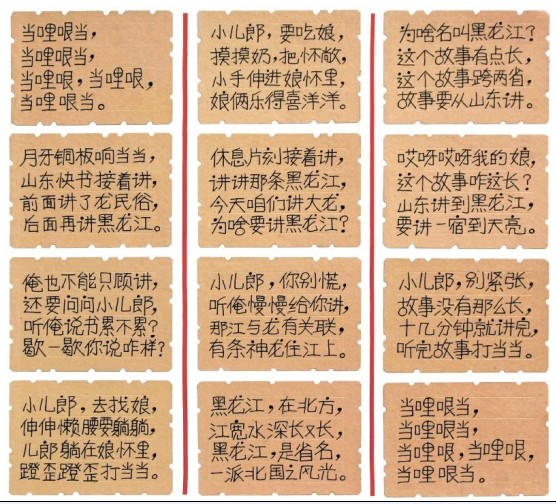 当哩哏当，
当哩哏当，
当哩哏，当哩哏，
当哩哏当。
月牙铜板响当当，
山东快书接着讲，
前面讲了龙民俗，
后面再讲黑龙江。
俺也不能只顾讲，
还要问问小儿郎，
听俺说书累不累？
歇一歇你说咋样？
小儿郎，去找娘，
伸伸懒腰要躺躺，
儿郎躺在娘怀里，
蹬歪蹬歪打当当。
小儿郎，要吃娘，
摸摸奶，把怀敞，
小手伸进娘怀里，
娘俩乐得喜洋洋。
休息片刻接着讲，
讲讲那条黑龙江，
今天咱们讲大龙，
为啥要讲黑龙江？
小儿郎，你别慌，
听俺慢慢给你讲，
那江与龙有关联，
有条神龙住江上。
黑龙江，在北方，
江宽水深长又长，
黑龙江，是省名，
一派北国之风光。
为啥名叫黑龙江？
这个故事有点长，
这个故事跨两省，
故事要从山东讲。
哎呀哎呀我的娘，
这个故事咋这长？
山东讲到黑龙江，
要讲一宿到天亮。
小儿郎，别紧张，
故事没有那么长，
十几分钟就讲完，
听完故事打当当。
当哩哏当，
当哩哏当，
当哩哏，当哩哏，
当哩哏当。